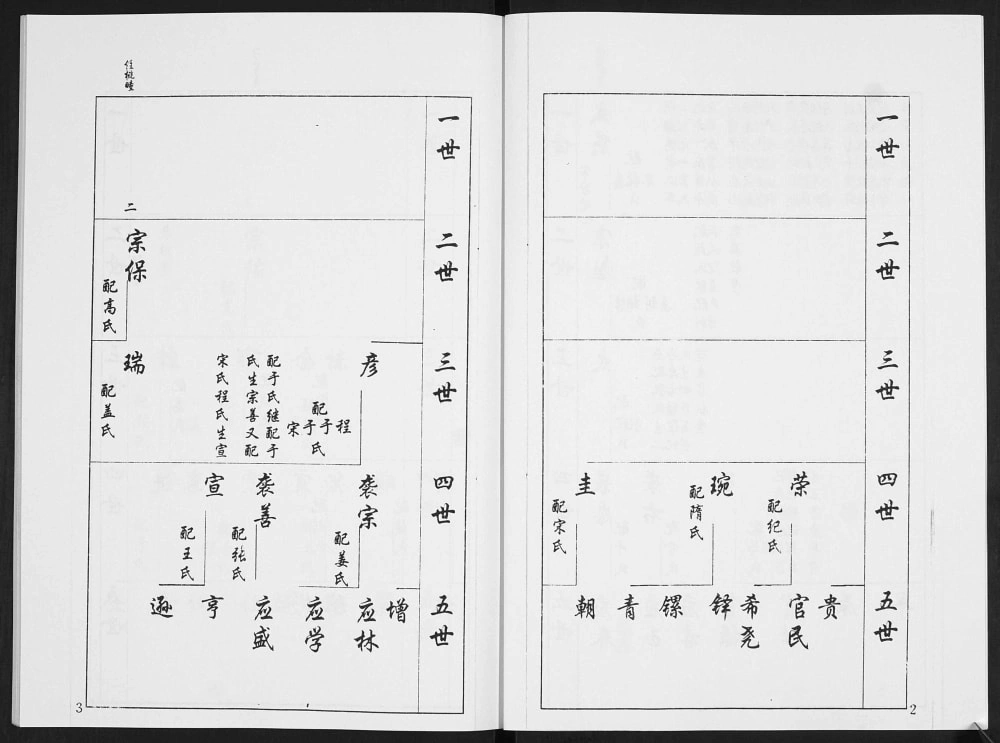 一世
二世
三世
四世
荣
配纪氏
琬
配隋氏
圭
配宋氏
五世
贵
官民
希尧
铎
镙
青
朝
2
一世
二世
二
宗保
配高氏
三世
彦
配
程
于
于
宋
氏
配于氏继配于
氏生宗善又配
宋氏程氏生宣
瑞
配盖氏
四世
袭宗
配姜氏
袭善
配张氏
宣
配王氏
五世
增
应林
应学
应盛
亨
逊
3